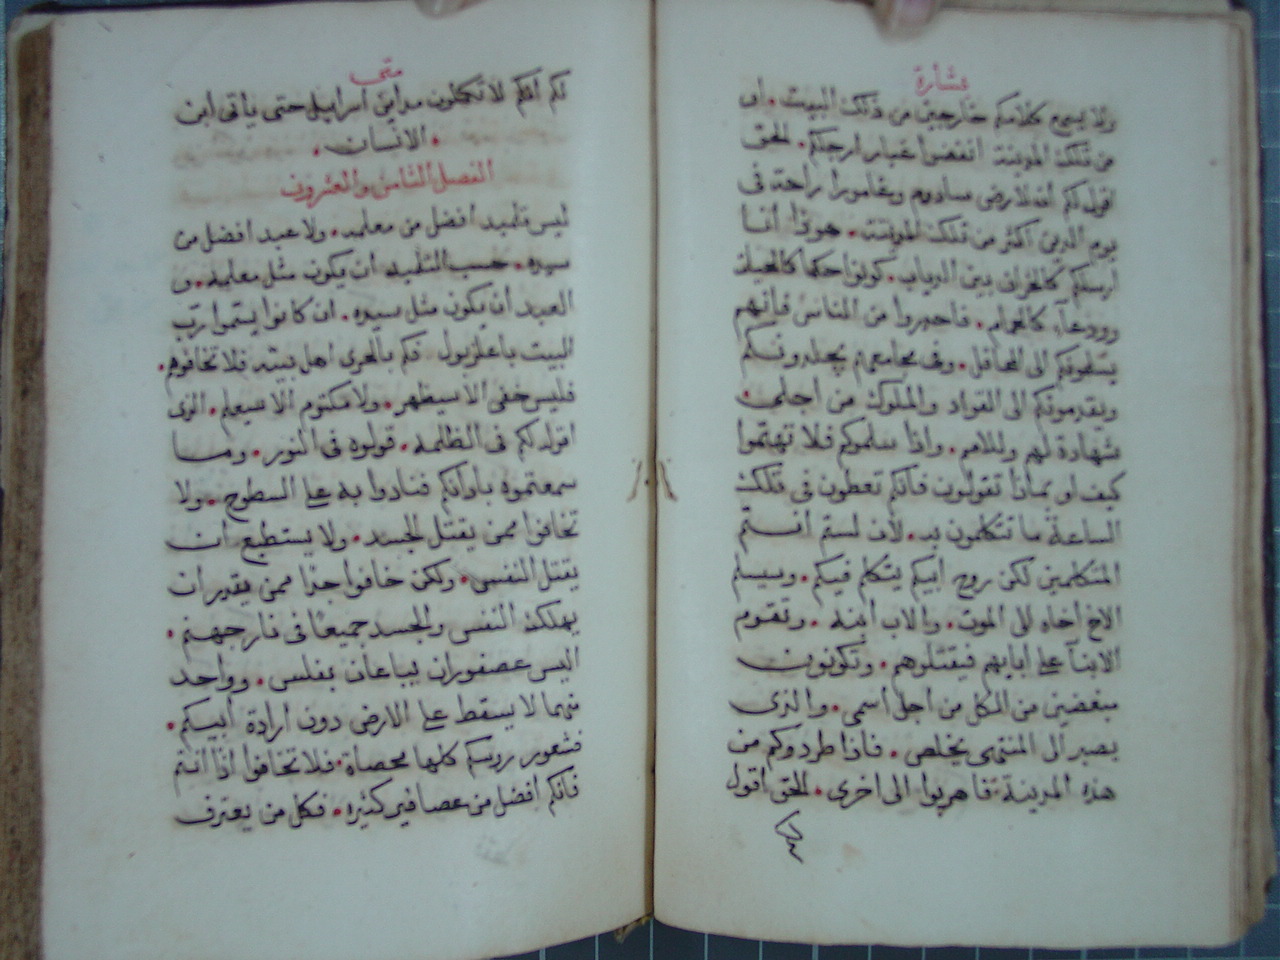 بشارة
ولا يسمع كلامكم خارجين من ذلك البيت. او
من تلك المدينة انفضوا غبار ارجلكم. الحق
اقول لكم انه لارض سادوم وغامورا راحة فى
يوم الدين اكثر من تلك المدينة. هوذا أنا
ارسلكم كالخراف بين الدياب. كونوا حكما كالحيات
وودعآء كالحمام. فاحدروا من الناس فإنهم
يسلمونكم الى المحافل. وفى مجامعهم يجلدونكم
ويقدمونكم الى القواد والملوك من أجلى.
شهادة لهم وللامم. واذا سلموكم فلا تهتموا
كيف او بماذا تقولون فانكم تعطون فى تلك
الساعة ما تتكلمون به. لان لستم انتم
المتكلمين لكن روح ابيكم يتكلم فيكم. وسيسلم
الاخ أخاه الى الموت. والاب أبنه. وتقوم
الابنآ على ابايهم فيقتلوهم. وتكونون
مبغضين من الكل من أجل اسمى. والدى
يصبر الى المنتهى يخلص. فاذا طردوكم من
هذه المدينة فاهربوا الى اخرى. الحق اقول
لكم
متى
لكم انكم لا تكملون مداين اسراييل حتى ياتى ابن
. الانسان.
الفصل الثامن والعشرون
ليس تلميد افضل من معلمه. ولا عبد افضل من
سيده. حسب التلميد ان يكون مثل معلمه. و
العبد أن يكون مثل سيده. ان كانوا يسموا رب
البيت باعلزبول فكم بالحرى اهل بيته فلا تخافوهم.
فليس خفى الا سيظهر. ولا مكتوم الا سيعلم. الدى
اقول لكم فى الظلمه. قولوه فى النور. وما
سمعتموه بادانكم فنادوا به على السطوح. ولا
تخافوا ممن يقتل الجسد. ولا يستطيع ان
يقتل النفس. ولكن خافوا جدا ممن يقدير ان
يهلك النفس والجسد جميعًا فى نار جهنم.
اليس عصفوران يباعان بفلس. وواحد
منهما لا يسقط على الارض دون ارادة أبيكم.
فشعور روسكم كلها محصاة. فلا تخافوا اذًا انتم
فانكم افضل من عصافير كثيره. فكل من يعترف